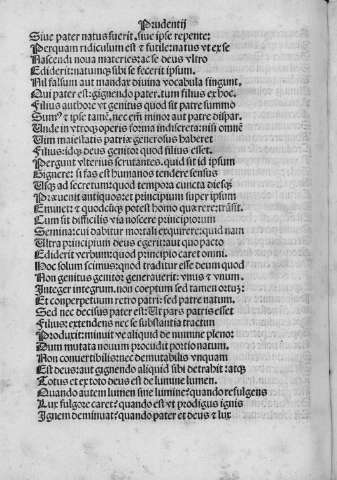 Prudentij
Siue pater natus fuerit, siue ipse repente:
Perquam ridiculum est & futile: natus vt ex se
Nascendi noua materies: ac se deus vltro
Ediderit: natumq; sibi se fecerit ipsum.
Nil falsum aut mendax diuina vocabula fingunt.
Qui pater est: gignendo pater. tum filius ex hoc.
Filius authore vt genitus quod sit patre summo
Summꝰ & ipse tamē. nec em̄ minor aut patre dispar.
Unde in vtroq; operis forma indiscreta: nisi omnē
Uim maiestatis patriæ generosus haberet
Filius: idq; deus genitor quod filius esset.
Pergunt vlterius scrutantes. quid sit id ipsum
Gignere: si fas est humanos tendere sensus
Usq; ad secretum: quod tempora cuncta diesq;
Præuenit antiquos: et principium super ipsum
Eminet: & quodcūq; potest homo quærere: trāsit.
Cum sit difficilis via noscere principiorum
Semina: cui dabitur mortali exquirere: quid nam
Ultra principium deus egerit: aut quo pacto
Ediderit verbum: quod principio caret omni.
Hoc solum scimus: quod traditur esse deum quod
Non genitus genitor generauerit: vnus & vnum.
Integer integrum. non coeptum sed tamen ortuȝ:
Et conperpetuum retro patri: sed patre natum.
Sed nec decisus pater est: Ut pars patris esset
Filius: extendens nec se substantia tractim
Produxit: minuit ve aliquid de numine pleno:
Dum mutata nouum procudit portio natum.
Non conuertibilis: nec demutabilis vnquam
Est deus: aut gignendo aliquid sibi detrahit: atq;
Totus et ex toto deus est de lumine lumen.
Quando autem lumen sine lumine? quando refulgens
Lux fulgore caret? quando est vt prodigus ignis
Ignem deminuat? quando pater et deus & lux